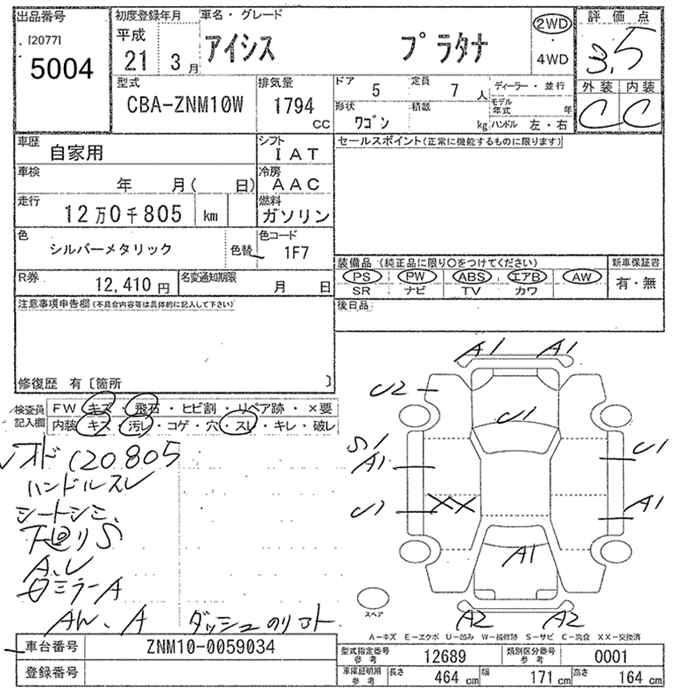 出品番号 初度登録年月 車名・グレード 評価点
[2077]
5004
平成 21年 3月 アイシス プラタナ 2WD ・ 4WD 3.5
型式 排気量 ドア 5 定員 7人 ディーラー・並行 外装 内装
CBA-ZNM10W 1794 cc 形状 ワゴン 積載 kg モデル年式 年 ハンドル 左・右 C C
車歴 自家用 シフト IAT セールスポイント(正常に機能するものに限ります)
車検 年 月( 日) 冷房 AAC
走行 12万0千805 km 燃料 ガソリン
色 シルバーメタリック 色替 色コード 1F7
装備品 (純正品に限り○をつけてください) 新車保証書
PS PW ABS エアB AW 有・無
SR ナビ TV カワ
R券 12,410円 名変通知期限 月 日
後日品
注意事項申告欄(不具合内容等は具体的に記入して下さい)
修復歴 有 [箇所 ]
検査員記入欄 FW キズ・飛石・ヒビ割・リペア跡・×要
内装 キズ・汚レ・コゲ・穴・スレ・キレ・破レ
A1 A1
U2
U1
S1
A1 U1
U1 XX A1
A1
A2 A2
オド120805
ハンドルスレ
シートシミ、
下廻りS
A、U
ミラーA
AW、A ダッシュのリコト
スペア
A-キズ E-エクボ U-凹み W-補修跡 S-サビ C-腐食 XX-交換済
車台番号 ZNM10-0059034
登録番号
型式指定番号 参考 12689 類別区分番号 参考 0001
車庫証明用 参考 長さ 464 cm 幅 171 cm 高さ 164 cm